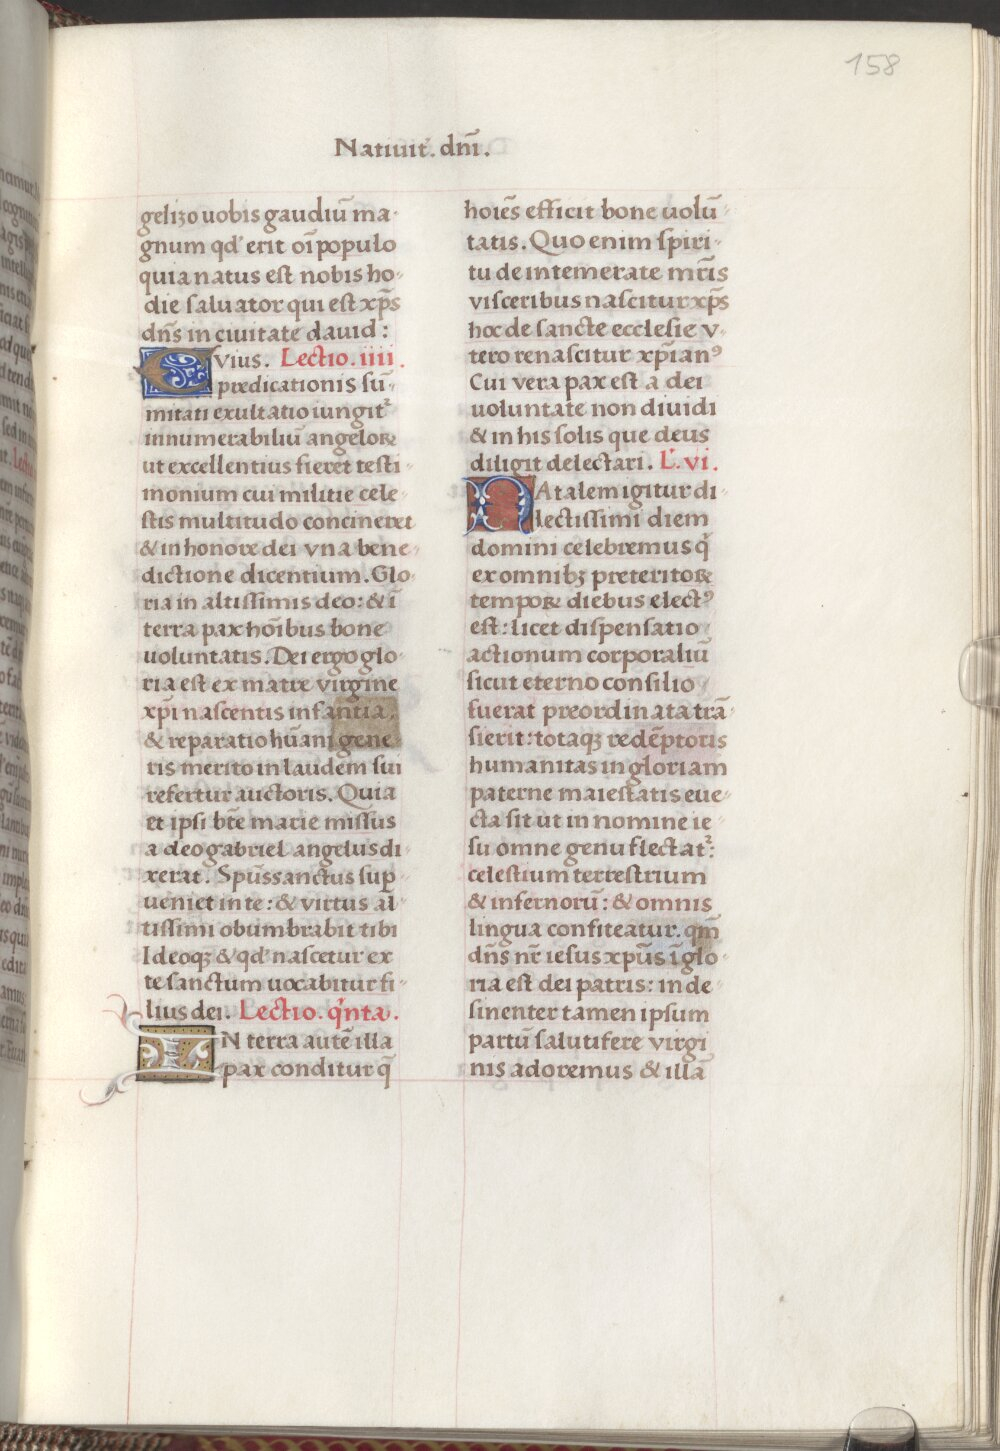 158
Natiuit̄. dnī.
gelizo uobis gaudiū ma-
gnum qd' erit oī populo
quia natus est nobis ho-
die saluator qui est xp̄s
dn̄s in ciuitate dauid :
Cuius. Lectio. iiii.
predicationis sū-
mitati exultatio iungit᷑
innumerabiliū angeloꝝ
ut excellentius fieret testi-
monium cui militie cele-
stis multitudo concineret
& in honore dei vna bene-
dictione dicentium. Glo-
ria in altissimis deo: & ī
terra pax hoībus bone
uoluntatis. Dei ergo glo-
ria est ex matre virgine
xp̄i nascentis infantia.
& reparatio hūani gene
ris merito in laudem sui
refertur auctoris. Quia
et ipsi btē marie missus
a deo gabriel angelus di-
xerat. Spūs sanctus sup̄
ueniet in te: & virtus al-
tissimi obumbrabit tibi
Ideoqꝫ & qd' nascetur ex
te sanctum uocabitur fi-
lius dei. Lectio. q'nta.
IN terra autē illa
pax conditur q̄
hoiēs efficit bone uolū-
tatis. Quo enim spiri-
tu de intemerate mr̄is
visceribus nascitur xp̄s
hoc de sancte ecclesie v-
tero renascitur xp̄ianꝰ
Cui vera pax est a dei
uoluntate non diuidi
& in his solis que deus
diligit delectari. L'. vi.
NAtalem igitur di-
lectissimi diem
domini celebremus q'
ex omnibꝫ preteritoꝝ
tempoꝝ diebus electꝰ
est: licet dispensatio
actionum corporaliū
sicut eterno consilio
fuerat preordinata trā-
sierit: totaqꝫ redēptoris
humanitas in gloriam
paterne maiestatis eue-
cta sit ut in nomine ie
su omne genu flectat᷑:
celestium terrestrium
& infernorū: & omnis
lingua confiteatur. qm̄
dn̄s nr̄ iesus xpūs ī glo-
ria est dei patris: in de-
sinenter tamen ipsum
partū salutifere virgi
nis adoremus & illā